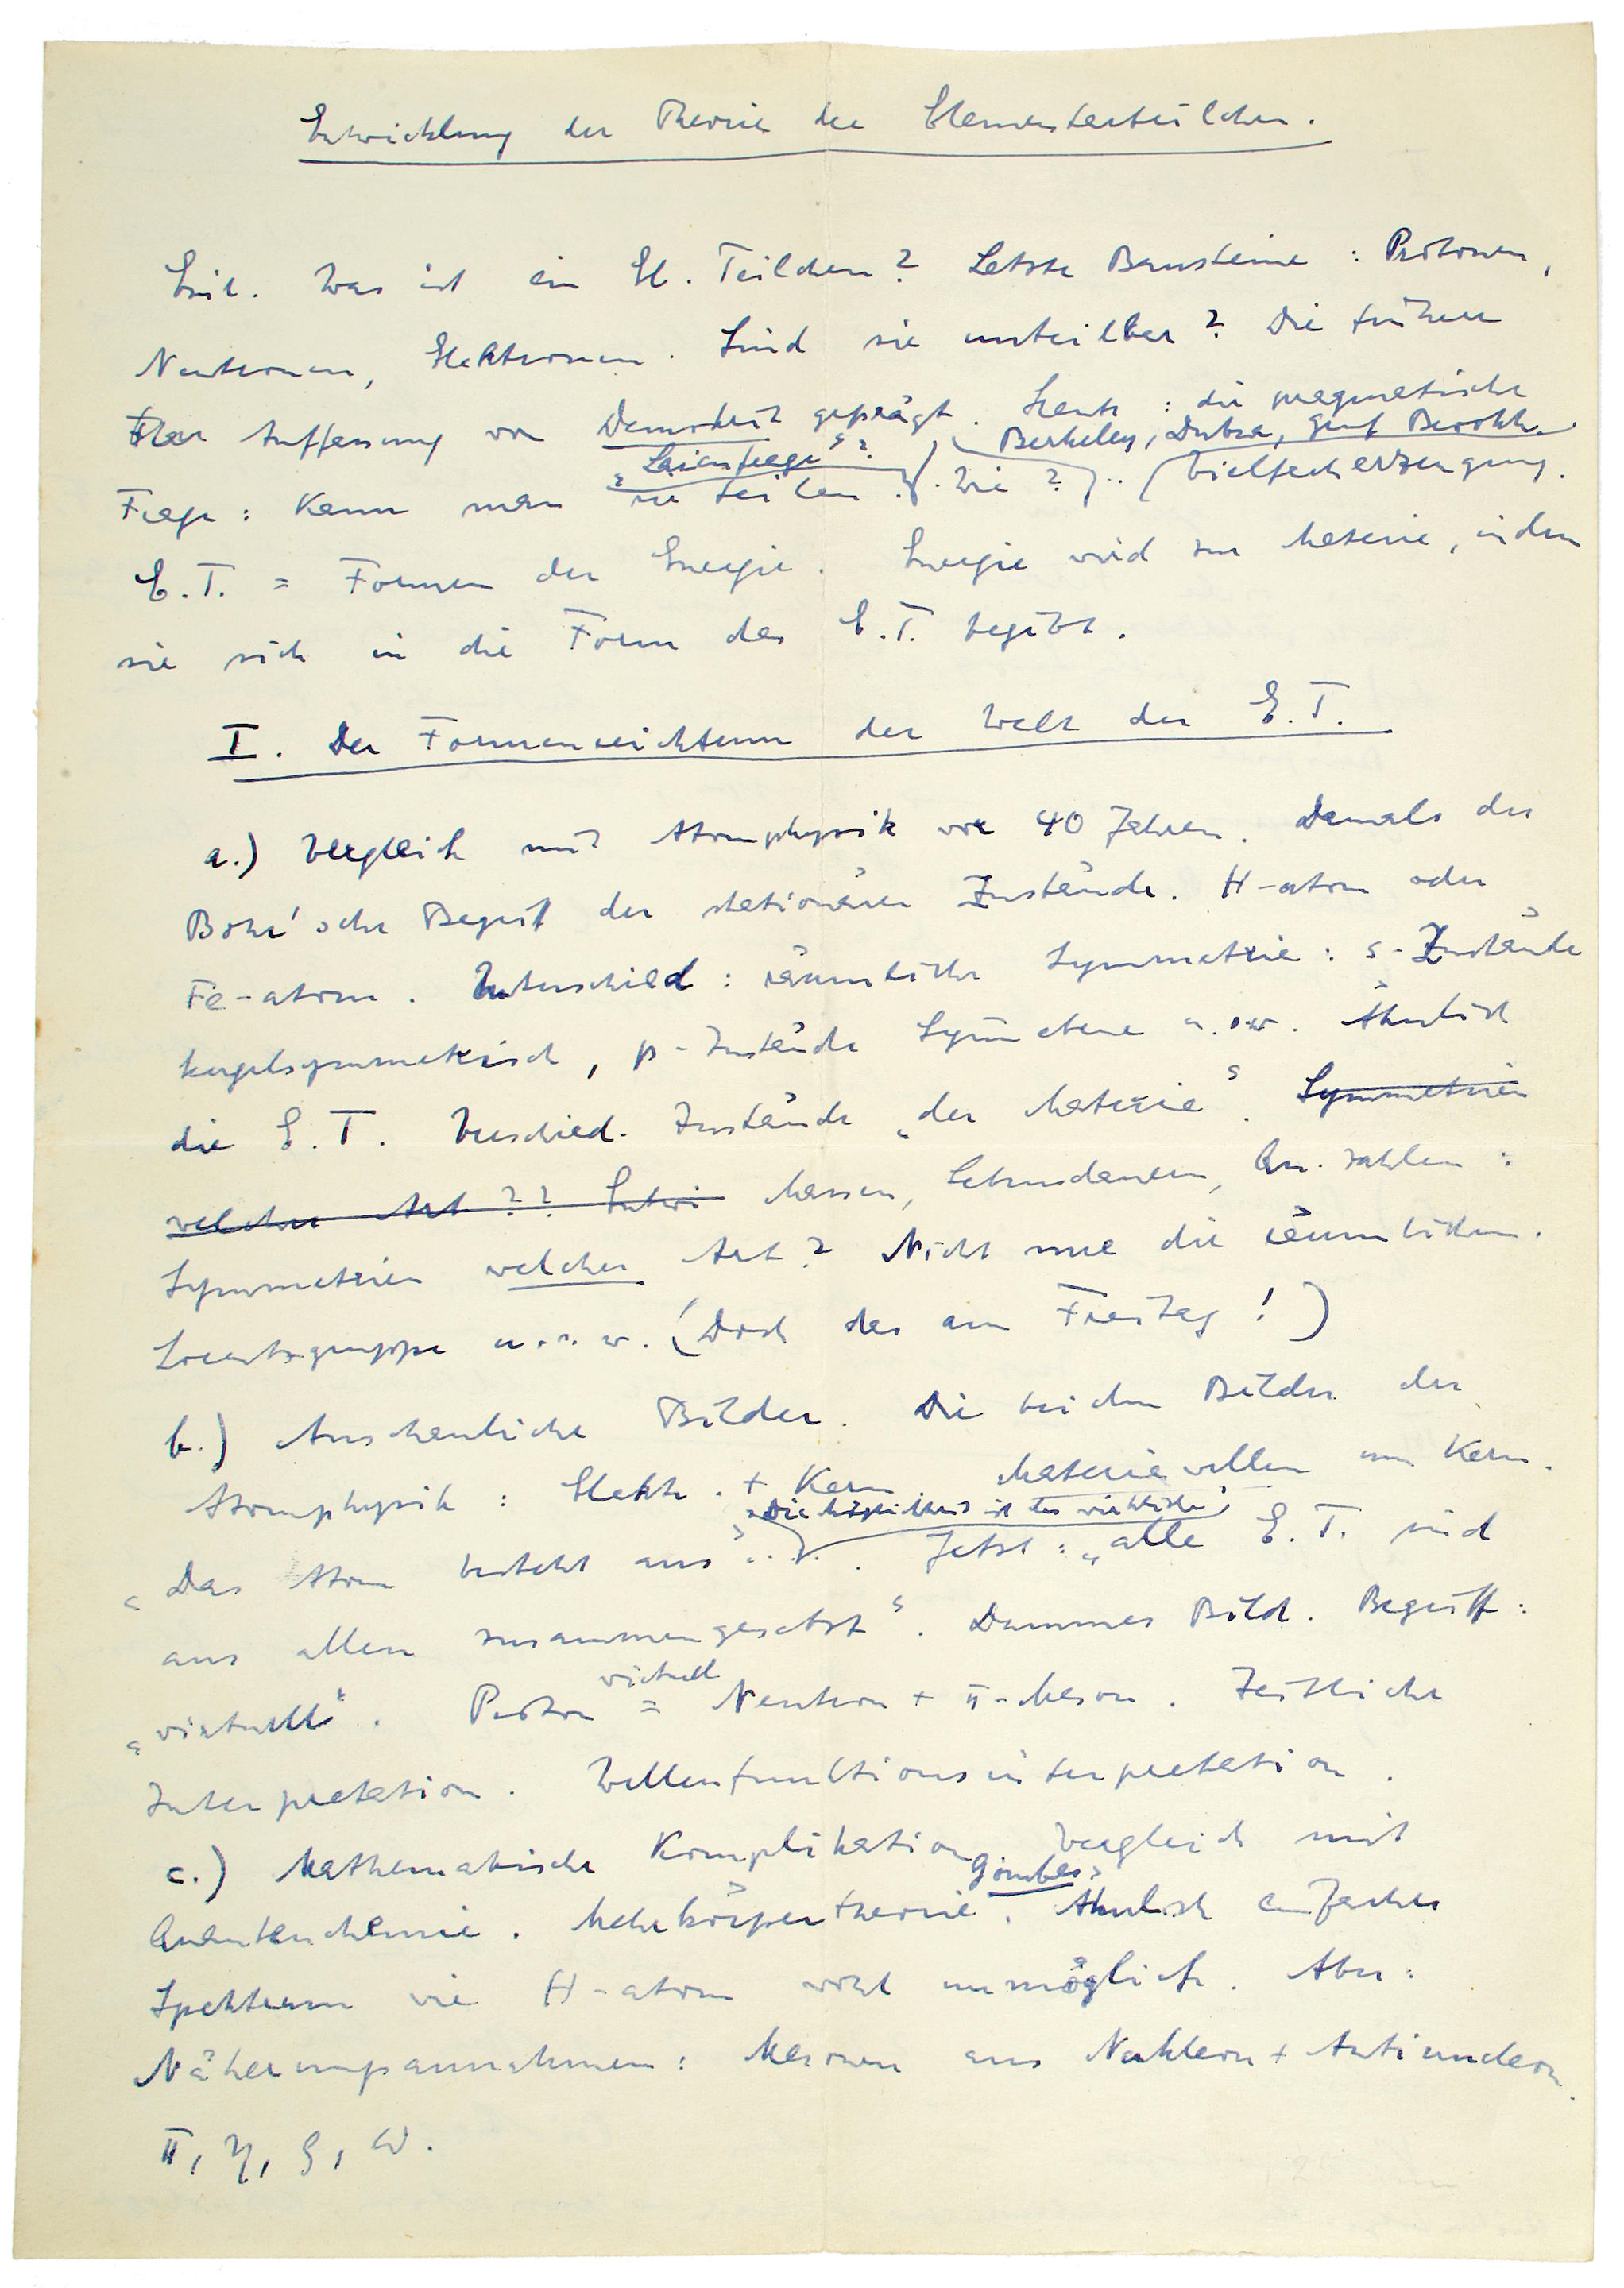 Entwicklung der Theorie der Elementarteilchen.
Einl. Was ist ein El. Teilchen? Letzte Bausteine: Protonen,
Neutronen, Elektronen. Sind sie unteilbar? Die frühere
Auffassung von Demokrit geprägt. Heute: die pragmatische
„Laienfrage“? Berkeley, Dubna, Genf Brookh.
Frage: Kann man sie teilen? Wie? (Vielfacherzeugung.
E.T. = Formen der Energie. Energie wird zur Materie, indem
sie sich in die Form des E.T. begibt.
I. Der Formenreichtum der Welt der E.T.
a.) Vergleich mit Atomphysik vor 40 Jahren. Damals der
Bohr'sche Begriff der stationären Zustände. H-atom oder
Fe-atom. Unterschied: räumliche Symmetrie: s-Zustände
kugelsymmetrisch, p-Zustände Symm ebene u.s.w. Ähnlich
die E.T. Verschied. Zustände „der Materie“. Symmetrien
welcher Art?? Entwi Massen, Lebensdauern, Qu. zahlen:
Symmetrien welcher Art? Nicht nur die räumlichen.
Lorentzgruppe u.s.w. (Doch das am Freitag!)
b.) Anschauliche Bilder. Die beiden Bilder der
Atomphysik: Elektr. + Kern Materiewellen um Kern.
„Die Möglichkeit ist das wirkliche“
„Das Atom besteht aus“... Jetzt: „alle E.T. sind
aus allen zusammengesetzt“. Dummes Bild. Begriff:
virtuell
„virtuell“. Proton = Neutron + π-Meson. Zeitliche
Interpretation. Wellenfunktionsinterpretation.
c.) Mathematische Komplikation Vergleich mit
Gombas
Quantenchemie. Mehrkörpertheorie. Ähnlich einfaches
Spektrum wie H-atom wohl unmöglich. Aber:
Näherungsannahmen: Mesonen aus Nukleon + Antinukleon.
π, η, ρ, ω.